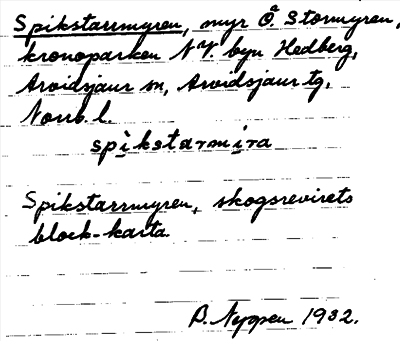 Spikstarrmyren, myr Ö. Stormyren,
kronoparken NV. byn Hedberg,
Arvidsjaur sn, Arvidsjaur tg,
Norrb. l.
spikstarmira
Spikstarrmyren, skogsrevirets
block-karta.
1932.